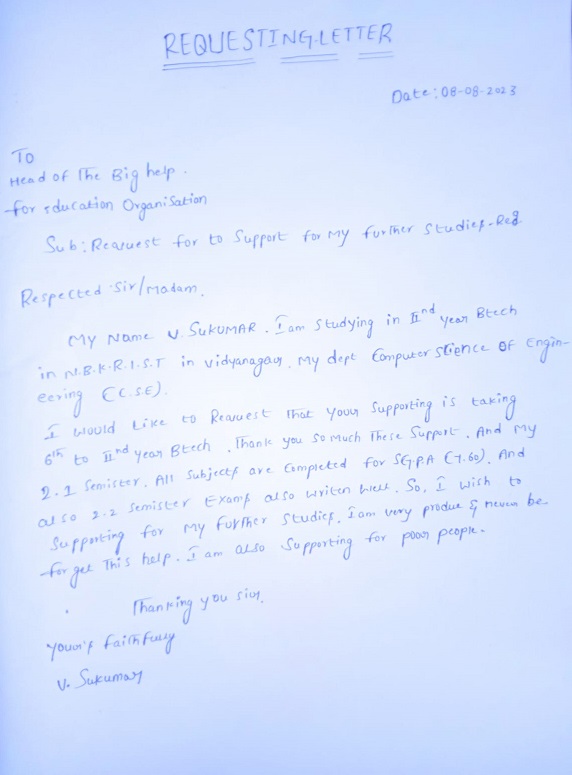 REQUESTING LETTER
Date: 08-08-2023
To
Head of The Big help.
for Education Organisation
Sub: Request for to Support for My further Studies-Reg
Respected Sir/Madam,
My Name V. SUKUMAR. I am Studying in IInd year Btech
in N.B.K.R.I.S.T in Vidyanagar. My dept Computer Science OF Engin-
eering (C.S.E).
I would Like to Request That your Supporting is taking
6th to IInd year Btech. Thank you So much These Support. And My
2.1 Semister. All Subjects are Completed for SGPA (7.60). And
also 2.2 Semister Exams also writen well. So, I wish to
Supporting for My further Studies. I am very produe & never be
forget This help. I am also Supporting for poor people.
Thanking you sir,
Your's faithfully
V. Sukumar